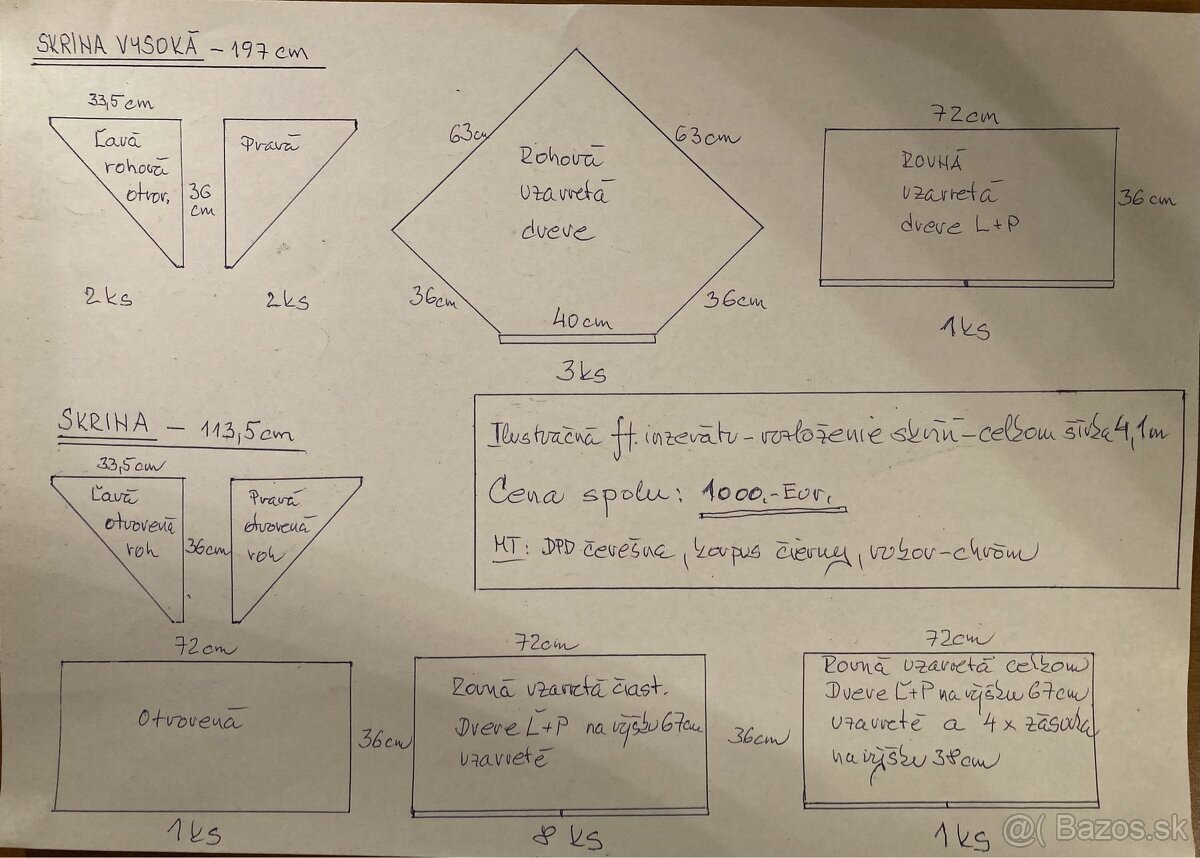 SKRINA VYSOKÁ – 197 cm
33,5 cm
Ľavá
rohová
otvor.
36
cm
2 ks
Pravá
2 ks
63cm
63cm
Rohová
uzavretá
dvere
36cm
36cm
40cm
3 ks
72cm
ROVNÁ
uzavretá
dvere L+P
36cm
1ks
SKRINA – 113,5cm
33,5cm
Ľavá
otvorená
roh
36cm
Pravá
otvorená
roh
Ilustračná ft. inzerátu – rozloženie skríň – celkom šírka 4,1m
Cena spolu: 1000.-Eur.
MT: DPD čerešna, korpus čierny, vokov-chróm
72cm
Otvorená
36cm
1ks
72cm
Rovná uzavretá čiast.
Dvere Ľ+P na výšku 67cm
uzavreté
36cm
8 ks
72cm
Rovná uzavretá celkom
Dvere Ľ+P na výšku 67cm
uzavreté a 4 x zásuvka
na výšku 38cm
1 ks
@( Bazos.sk